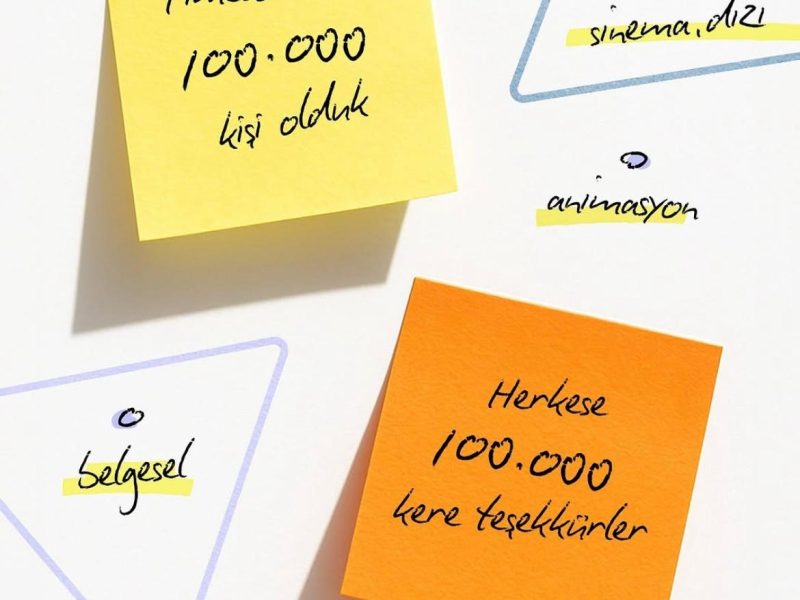 100.000
kişi olduk
sinema, dizi
animasyon
belgesel
Herkese
100.000
kere teşekkürler